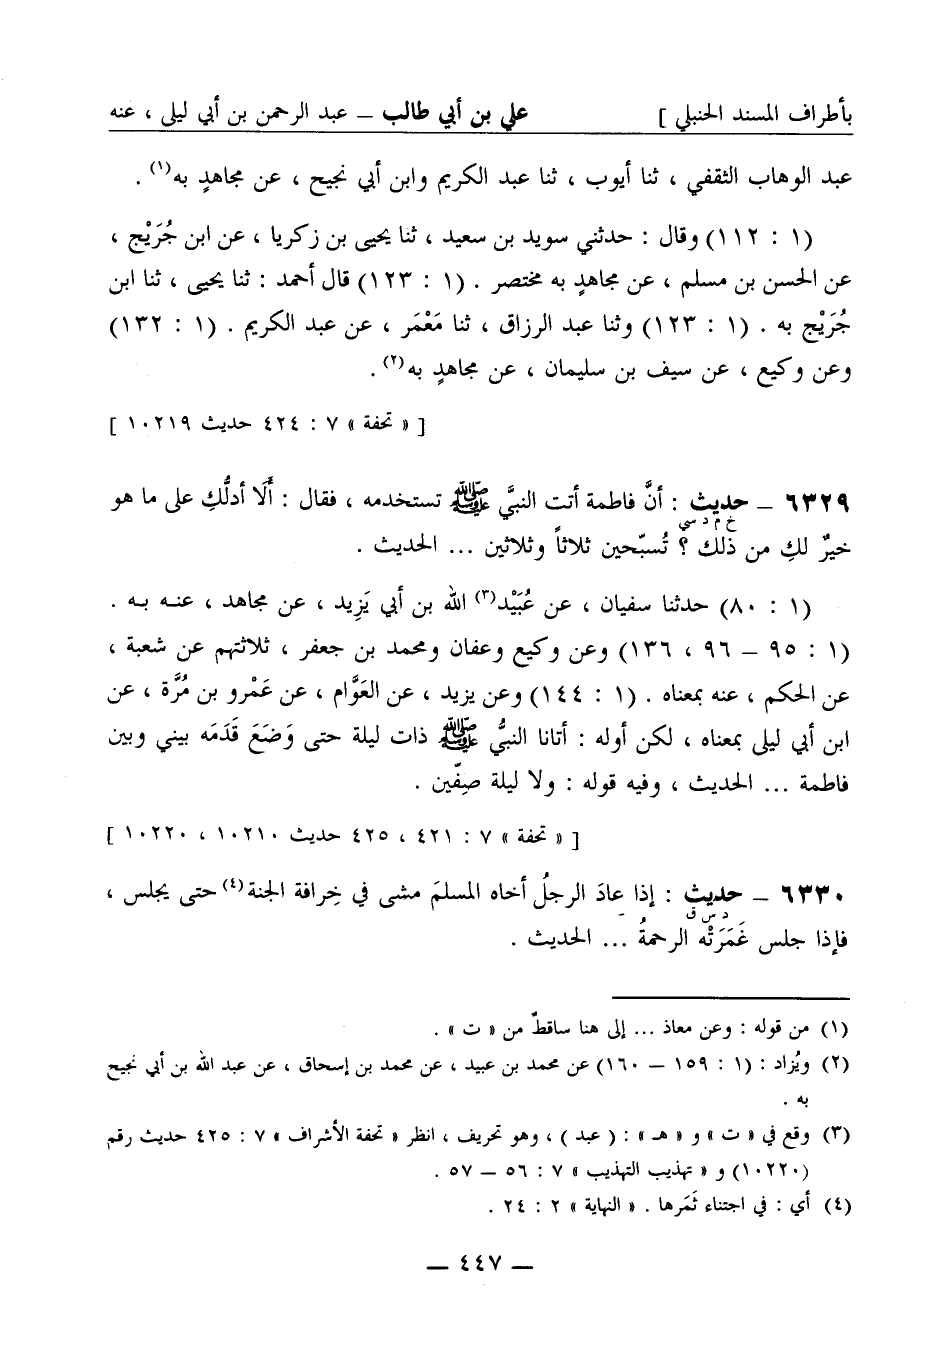 بأطراف المسند الحنبلي ] علي بن أبي طالب – عبد الرحمن بن أبي ليلى ، عنه
عبد الوهاب الثقفي ، ثنا أيوب ، ثنا عبد الكريم وابن أبي نجيح ، عن مجاهدٍ به(١) .
(١ : ١١٢) وقال : حدثني سويد بن سعيد ، ثنا يحيى بن زكريا ، عن ابن جُرَيْج ،
عن الحسن بن مسلم ، عن مجاهدٍ به مختصر . (١ : ١٢٣) قال أحمد : ثنا يحيى ، ثنا ابن
جُرَيْج به . (١ : ١٢٣) وثنا عبد الرزاق ، ثنا مَعْمَر ، عن عبد الكريم . (١ : ١٣٢)
وعن وكيع ، عن سيف بن سليمان ، عن مجاهدٍ به(٢) .
[ « تحفة » ٧ : ٤٢٤ حديث ١٠٢١٩ ]
٦٣٢٩ – حديث : أنَّ فاطمة أتت النبيَّ ﷺ تستخدمه ، فقال : أَلَا أدلُّكِ على ما هو
خ م د سي
خيرٌ لكِ من ذلك ؟ تُسبّحين ثلاثاً وثلاثين ... الحديث .
(١ : ٨٠) حدثنا سفيان ، عن عُبَيْد(٣) الله بن أبي يَزِيد ، عن مجاهد ، عنه به .
(١ : ٩٥ – ٩٦ ، ١٣٦) وعن وكيع وعفان ومحمد بن جعفر ، ثلاثتهم عن شعبة ،
عن الحكم ، عنه بمعناه . (١ : ١٤٤) وعن يزيد ، عن العَوَّام ، عن عَمْرو بن مُرَّة ، عن
ابن أبي ليلى بمعناه ، لكن أوله : أتانا النبيُّ ﷺ ذات ليلة حتى وَضَعَ قَدَمَه بيني وبين
فاطمة ... الحديث ، وفيه قوله : ولا ليلة صِفّين .
[ « تحفة » ٧ : ٤٢١ ، ٤٢٥ حديث ١٠٢١٠ ، ١٠٢٢٠ ]
٦٣٣٠ – حديث : إذا عادَ الرجلُ أخاه المسلمَ مشى في خِرافة الجنة(٤) حتى يجلس ،
د س ق
فإذا جلس غَمَرَتْه الرحمةُ ... الحديث .
(١) من قوله : وعن معاذ ... إلى هنا ساقطٌ من « ت » .
(٢) ويُزاد : (١ : ١٥٩ – ١٦٠) عن محمد بن عبيد ، عن محمد بن إسحاق ، عن عبد الله بن أبي نجيح
به .
(٣) وقع في « ت » و « هـ » : ( عبد ) ، وهو تحريف ، انظر « تحفة الأشراف » ٧ : ٤٢٥ حديث رقم
(١٠٢٢٠) و « تهذيب التهذيب » ٧ : ٥٦ – ٥٧ .
(٤) أي : في اجتناء ثَمَرها . « النهاية » ٢ : ٢٤ .
– ٤٤٧ –